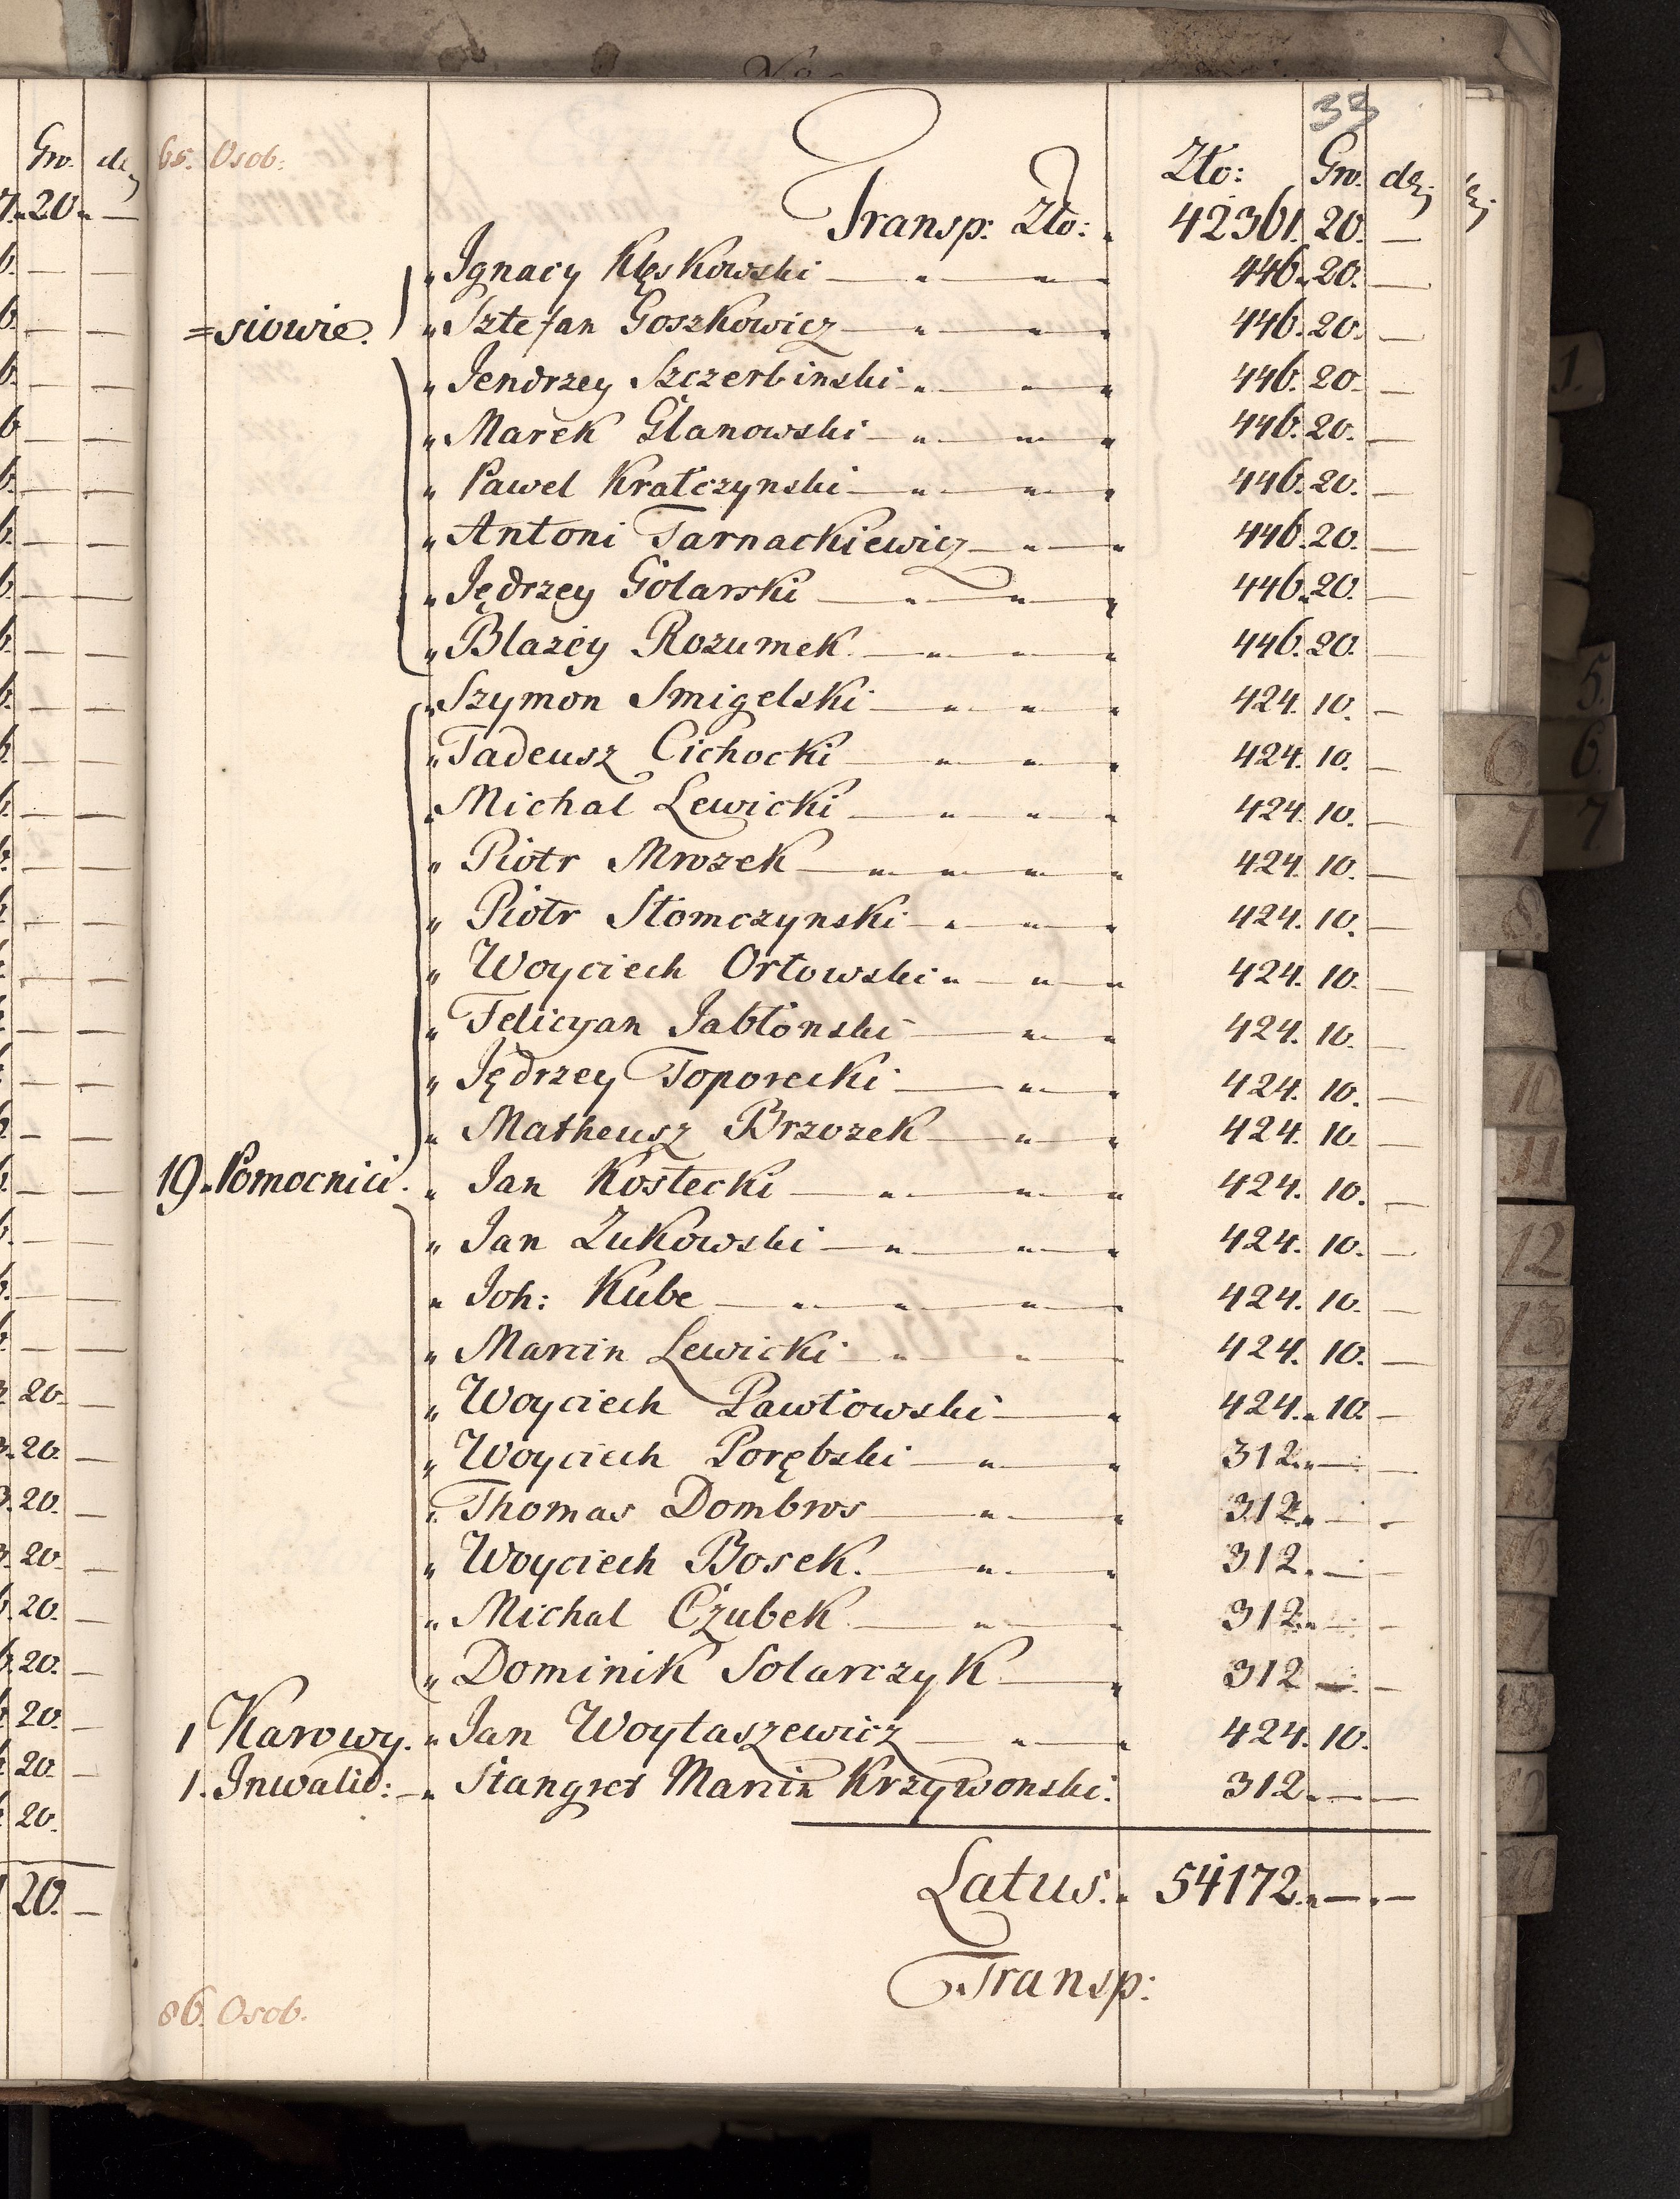 33
65. Osob: Zło: Gro. de
Transp: Zło: 42361. 20. —
Ignacy Klęskowski — 446. 20. —
=siowie. Sztefan Goszkowicz — 446. 20. —
Jendrzey Szczerbinski — 446. 20. —
Marek Glanowski — 446. 20. —
Pawel Kratczynski — 446. 20. —
Antoni Tarnackiewicz — 446. 20. —
Jędrzey Golarski — 446. 20. —
Blazey Rozumek. — 446. 20. —
Szymon Smigelski — 424. 10. —
Tadeusz Cichocki — 424. 10. —
Michal Lewicki — 424. 10. —
Piotr Mrozek — 424. 10. —
Piotr Słomczynski — 424. 10. —
Woyciech Orłowski — 424. 10. —
Felicyan Jabłonski — 424. 10. —
Jędrzey Toporecki — 424. 10. —
Matheusz Brzozek — 424. 10. —
19. Pomocnici. Jan Kostecki — 424. 10. —
Jan Zukowski — 424. 10. —
Joh: Kube — 424. 10. —
Marcin Lewicki — 424. 10. —
Woyciech Pawłowski — 424. 10. —
Woyciech Porębski — 312. — —
Thomas Dombros — 312. — —
Woyciech Bosek. — 312. — —
Michal Czubek — 312. — —
Dominik Solarczyk — 312 — —
1 Karowy. Jan Woytaszewicz — 424. 10.
1. Inwalid: Stangret Marcin Krzywonski. 312. — —
Latus. 54172. — —
Transp:
86. Osob.